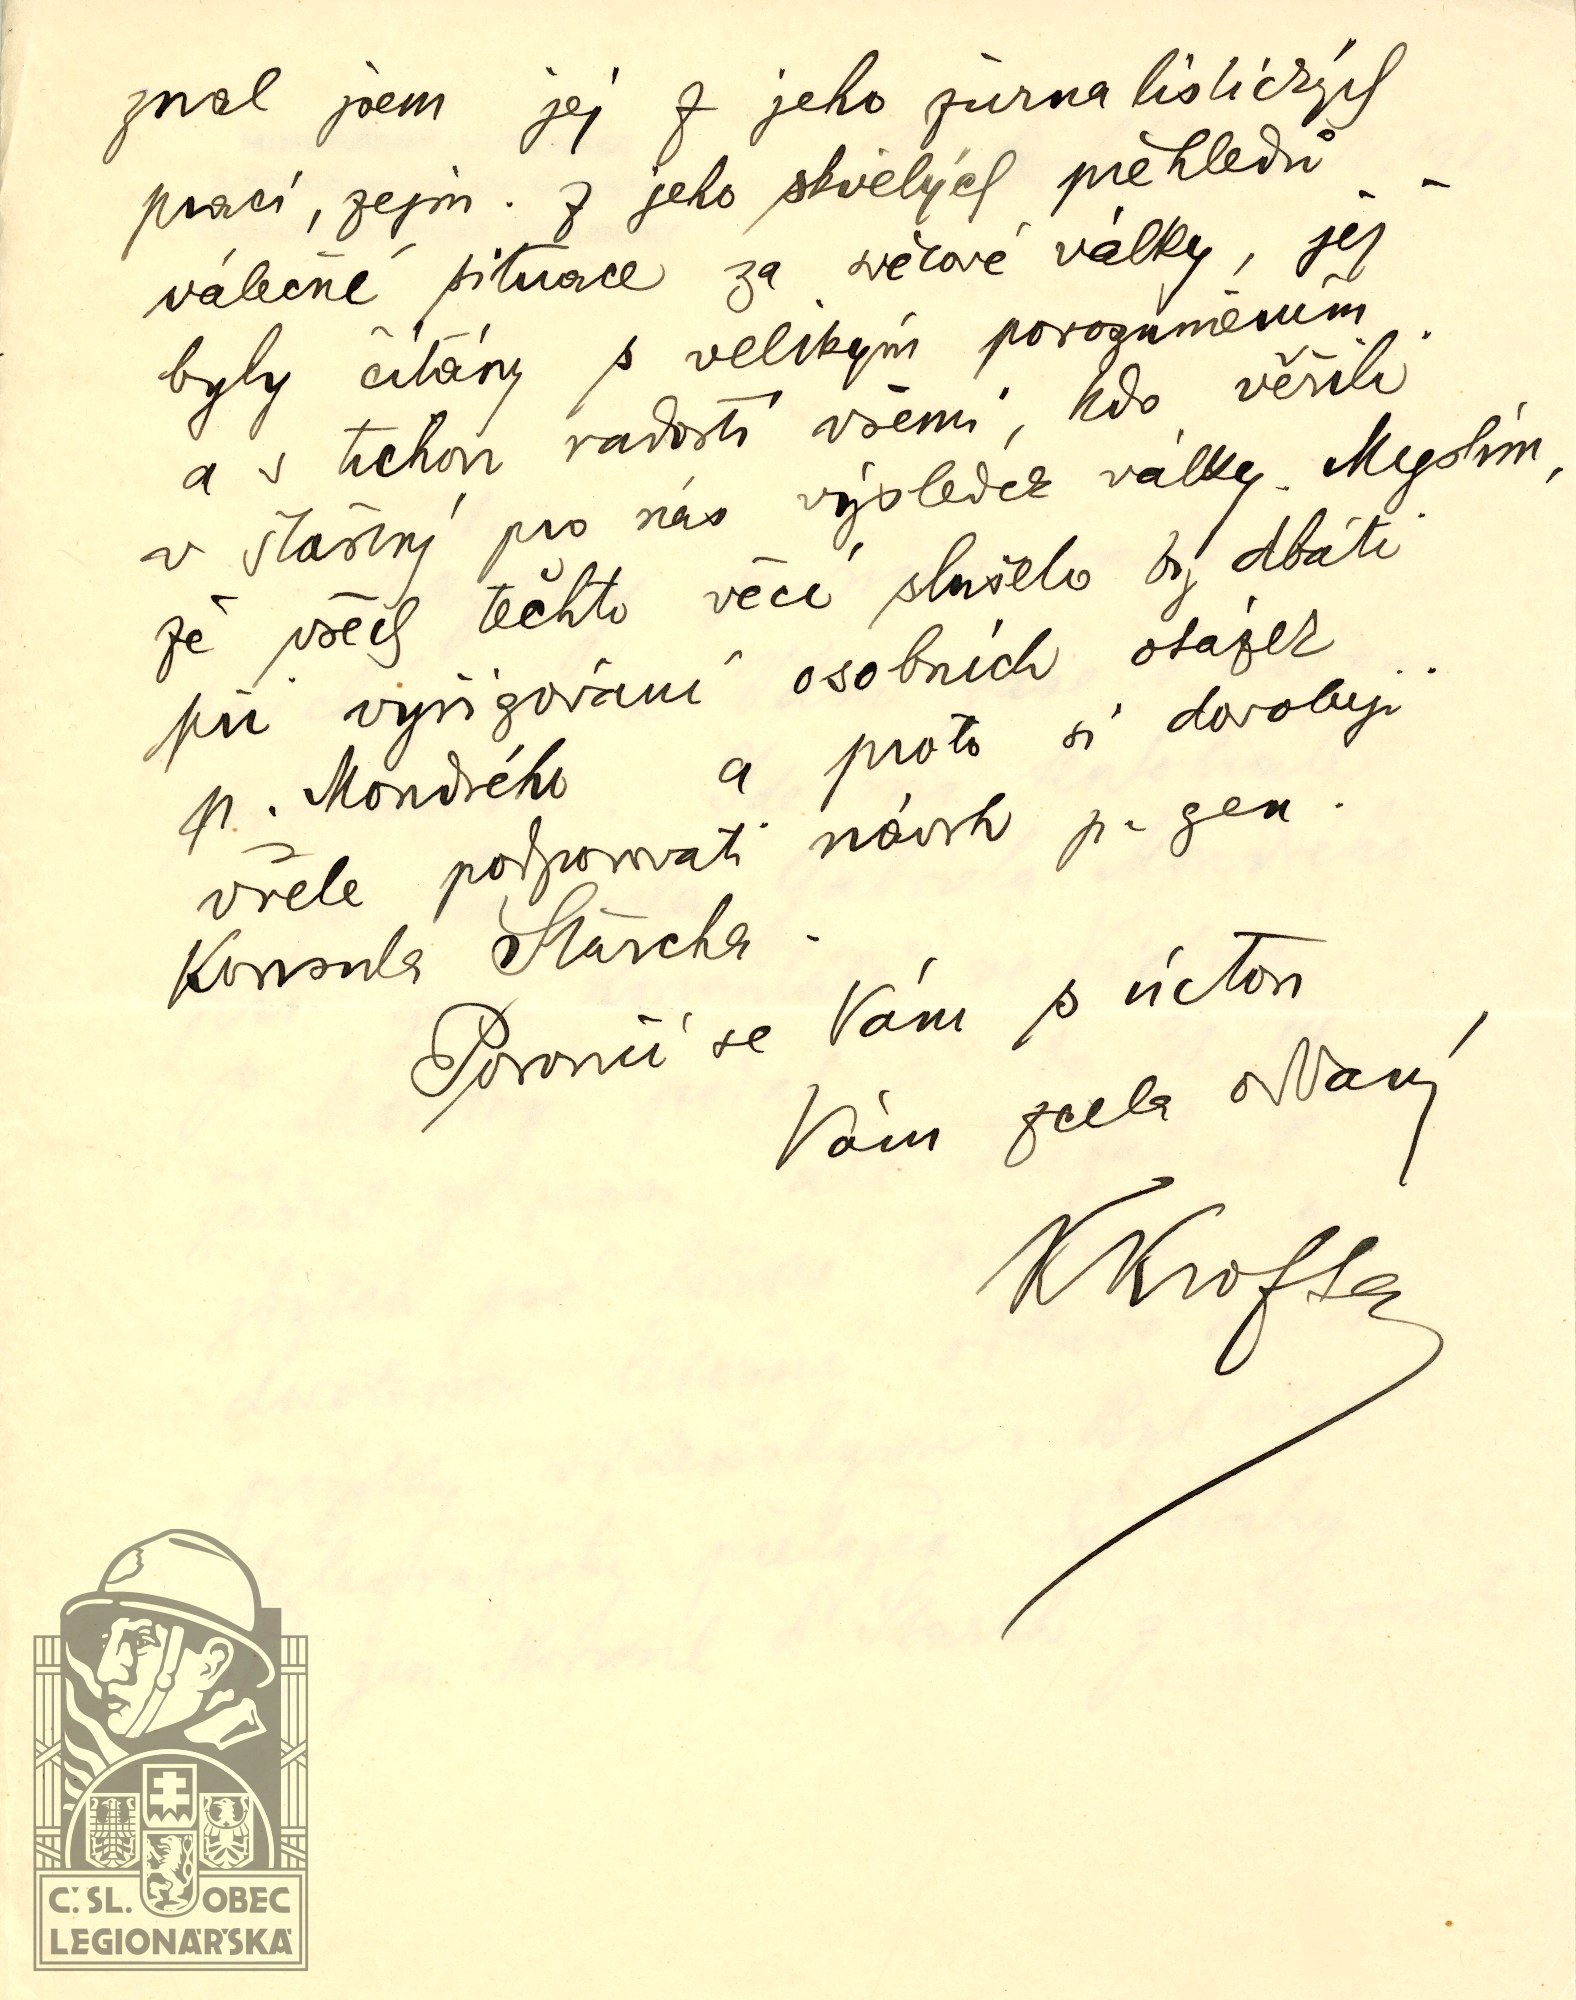 znal jsem jej z jeho žurnalistických
prací, zejm. z jeho skvělých přehledů
válečné situace za světové války, jež
byly čítány s velikým porozuměním
a s tichou radostí všemi, kdo věřili
v šťastný pro nás výsledek války. Myslím,
že všech těchto věcí slušelo by dbáti
při vyřizování osobních otázek
p. Mondrého a proto si dovoluji
vřele podporovati návrh p. gen.
Konsula Štürcha.
Poroučí se Vám s úctou
Vám zcela oddaný
KKrofta
Č. SL. OBEC
LEGIONÁŘSKÁ